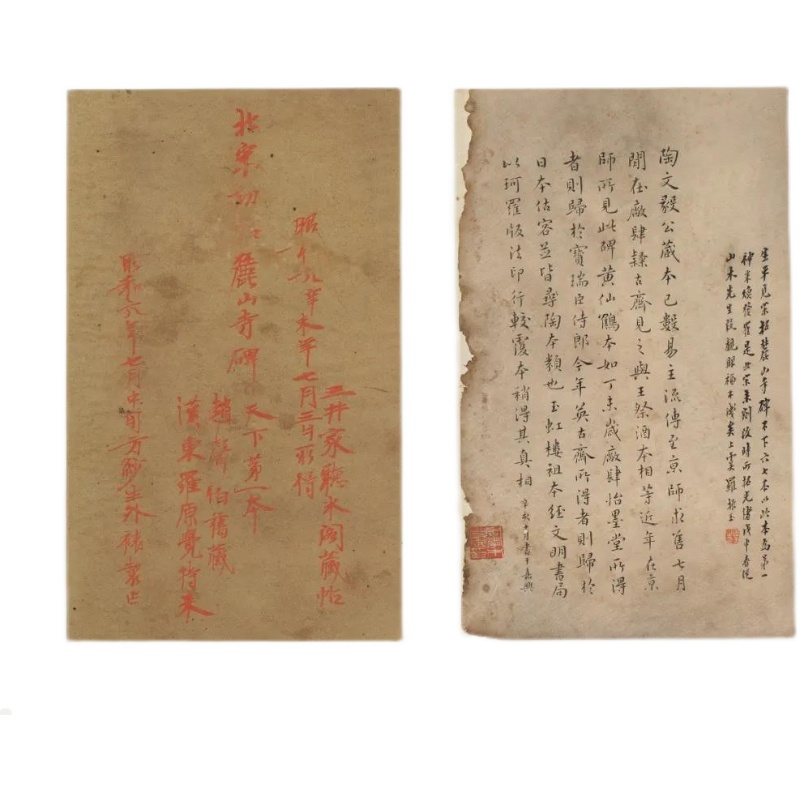 三井家聽冰閣藏帖
辛未年七月三井
北宋初 麓山寺碑
天下第一本
趙聲伯舊藏
漢東羅原覺持来
昭和六年七月中旬
生平見宋拓麓山寺碑不下六七本以此本為第一
神采煥發確是北宋未剜改時所拓光緒戊申春從
山本先生段觀眼福不淺矣上虞羅振玉
陶文毅公藏本已數易主流傳至京師求舊七月
間在廠肆隸古齋見之與王祭酒本相等近年在京
師所見此碑黃仙鶴本如丁未歲廠肆怡墨堂所得
者則歸於寶瑞臣侍郎今年英古齋所得者則歸於
日本估客並皆尋陶本類也玉虹樓祖本經文明書局
以珂羅版法印行較覆本稍得其真相